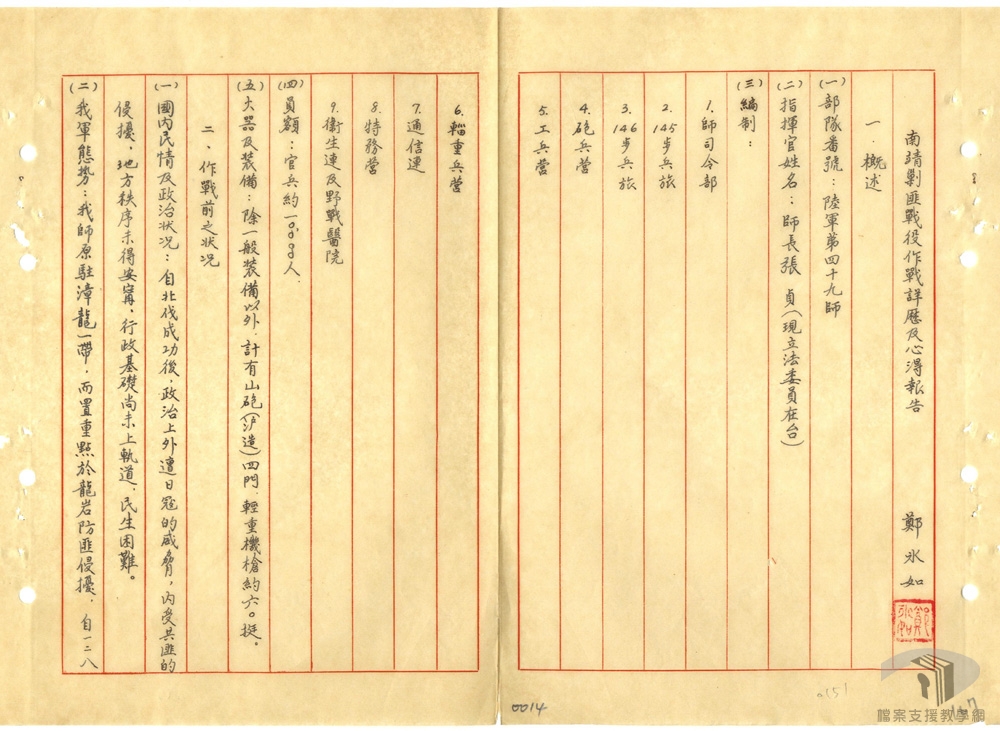 南靖剿匪戰役作戰詳歷及心得報告　鄭氷如
一．概述
(一)部隊番號：陸軍第四十九師
(二)指揮官姓名：師長張　貞(現立法委員在台)
(三)編制：
1.師司令部
2.145步兵旅
3.146步兵旅
4.砲兵營
5.工兵營
6.輜重兵營
7.通信連
8.特務營
9.衛生連及野戰醫院
(四)員額：官兵約一〇,〇〇〇人.
(五)火器及裝備：除一般裝備以外.計有山砲(沪造)四門.輕重機槍約六〇挺.
二、作戰前之狀況
(一)國內民情及政治狀況：自北伐成功後,政治上外遭日寇的威脅,內受共匪的
侵擾,地方秩序未得安寗,行政基礎尚未上軌道.民生困難。
(二)我軍態勢：我師原駐漳龍一帶,而置重點於龍岩防匪侵擾.自一二八
0014
0151
檔案支援教學網